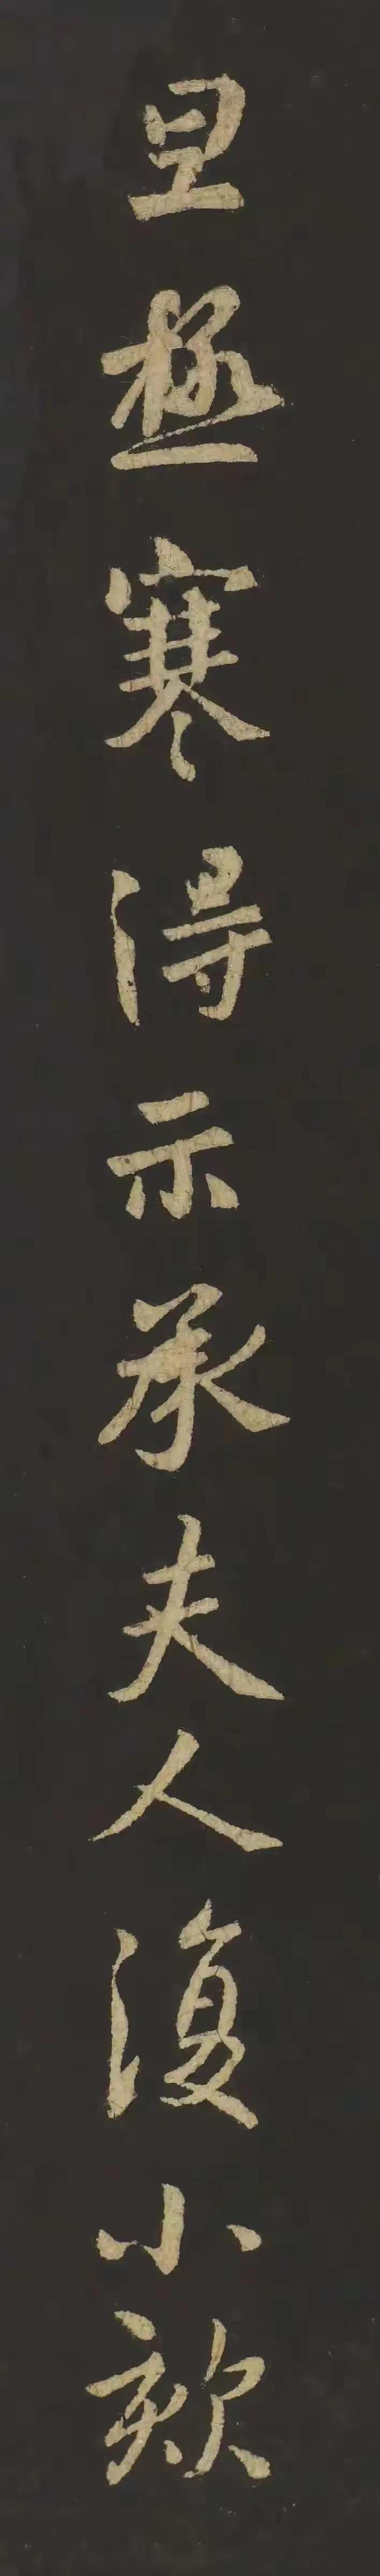 旦極寒得示承夫人復小欬